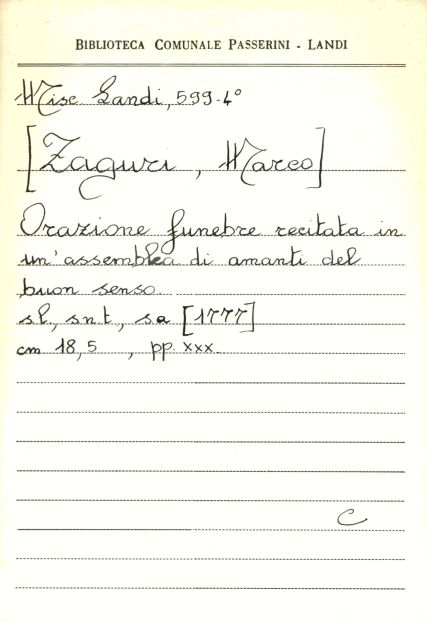 BIBLIOTECA COMUNALE PASSERINI - LANDI
Misc Landi, 599-4°
[Zaguri, Marco]
Orazione funebre recitata in
un'assemblea di amanti del
buon senso
s.l., s.n.t., s.a [1777]
cm 18,5 , pp. xxx.
C